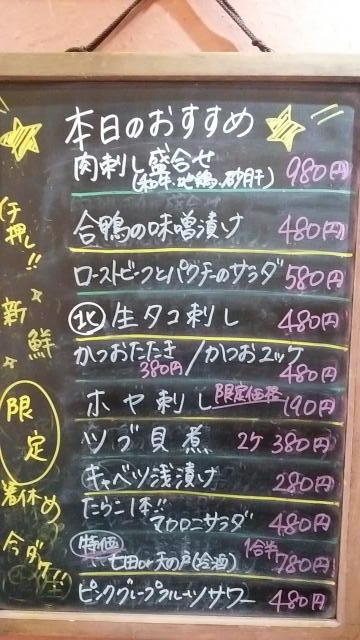 本日のおすすめ
肉刺し盛合せ 980円
(和牛・地鶏・砂肝)
合鴨の味噌漬け 480円
ローストビーフとパクチーのサラダ 580円
北 生タコ刺し 480円
かつおたたき/かつおユッケ
380円 480円
ホヤ刺し 限定価格 190円
ツブ貝煮 2ケ 380円
キャベツ浅漬け 280円
たらこ1本!!
マカロニサラダ 480円
特価 1合半
七田or天の戸(冷酒) 780円
ピンクグレープフルーツサワー 480円
イチ押し!!
新鮮
限定
箸休め
今ダケ!!